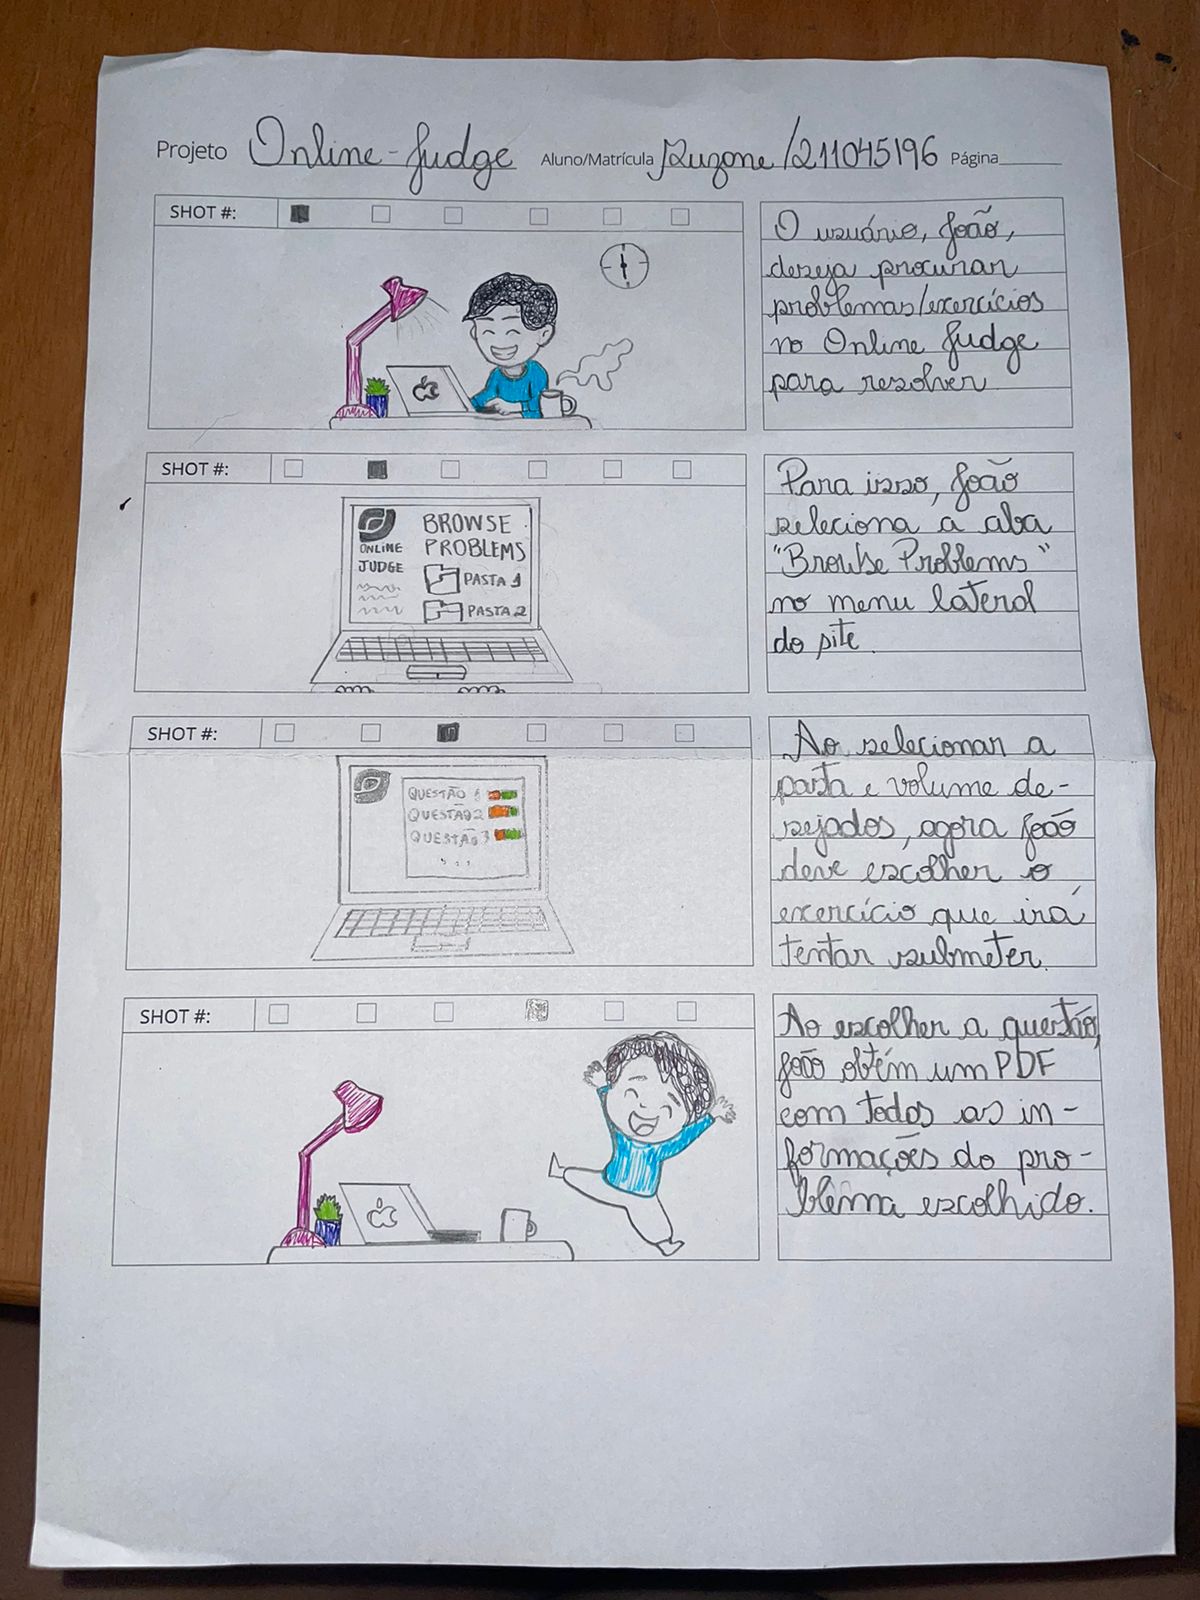 Projeto Online-Judge Aluno/Matrícula Suzane /211045196 Página
SHOT #:
O usuário, João,
deseja procurar
problemas/exercícios
no Online Judge
para resolver
SHOT #:
ONLINE
JUDGE
BROWSE
PROBLEMS
PASTA 1
PASTA 2
Para isso, João
seleciona a aba
"Browse Problems"
no menu lateral
do site.
SHOT #:
QUESTÃO 1
QUESTÃO 2
QUESTÃO 3
...
Ao selecionar a
pasta e volume de-
sejados, agora João
deve escolher o
exercício que irá
tentar submeter.
SHOT #:
Ao escolher a questão,
João obtém um PDF
com todas as in-
formações do pro-
blema escolhido.